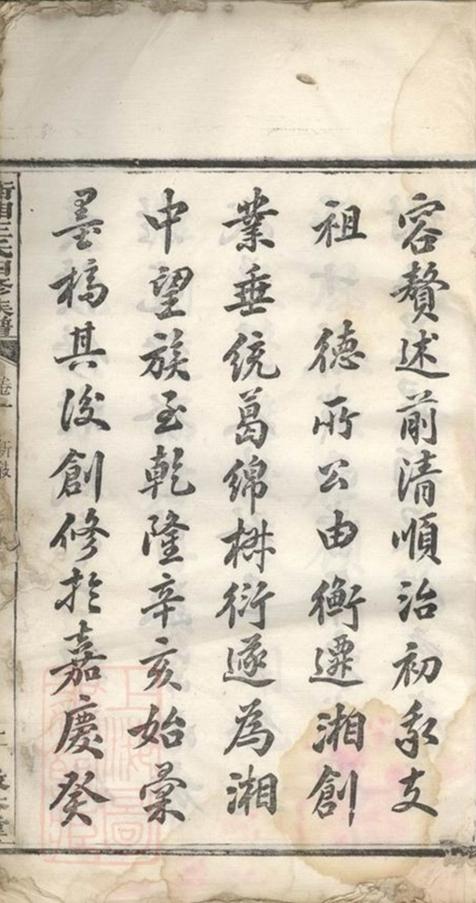 容贅述前清順治初我支
祖 德所公由衡遷湘創
業垂統葛綿椒衍遂為湘
中望族至乾隆辛亥始彙
墨稿其後創修於嘉慶癸
王氏四修族譜
卷